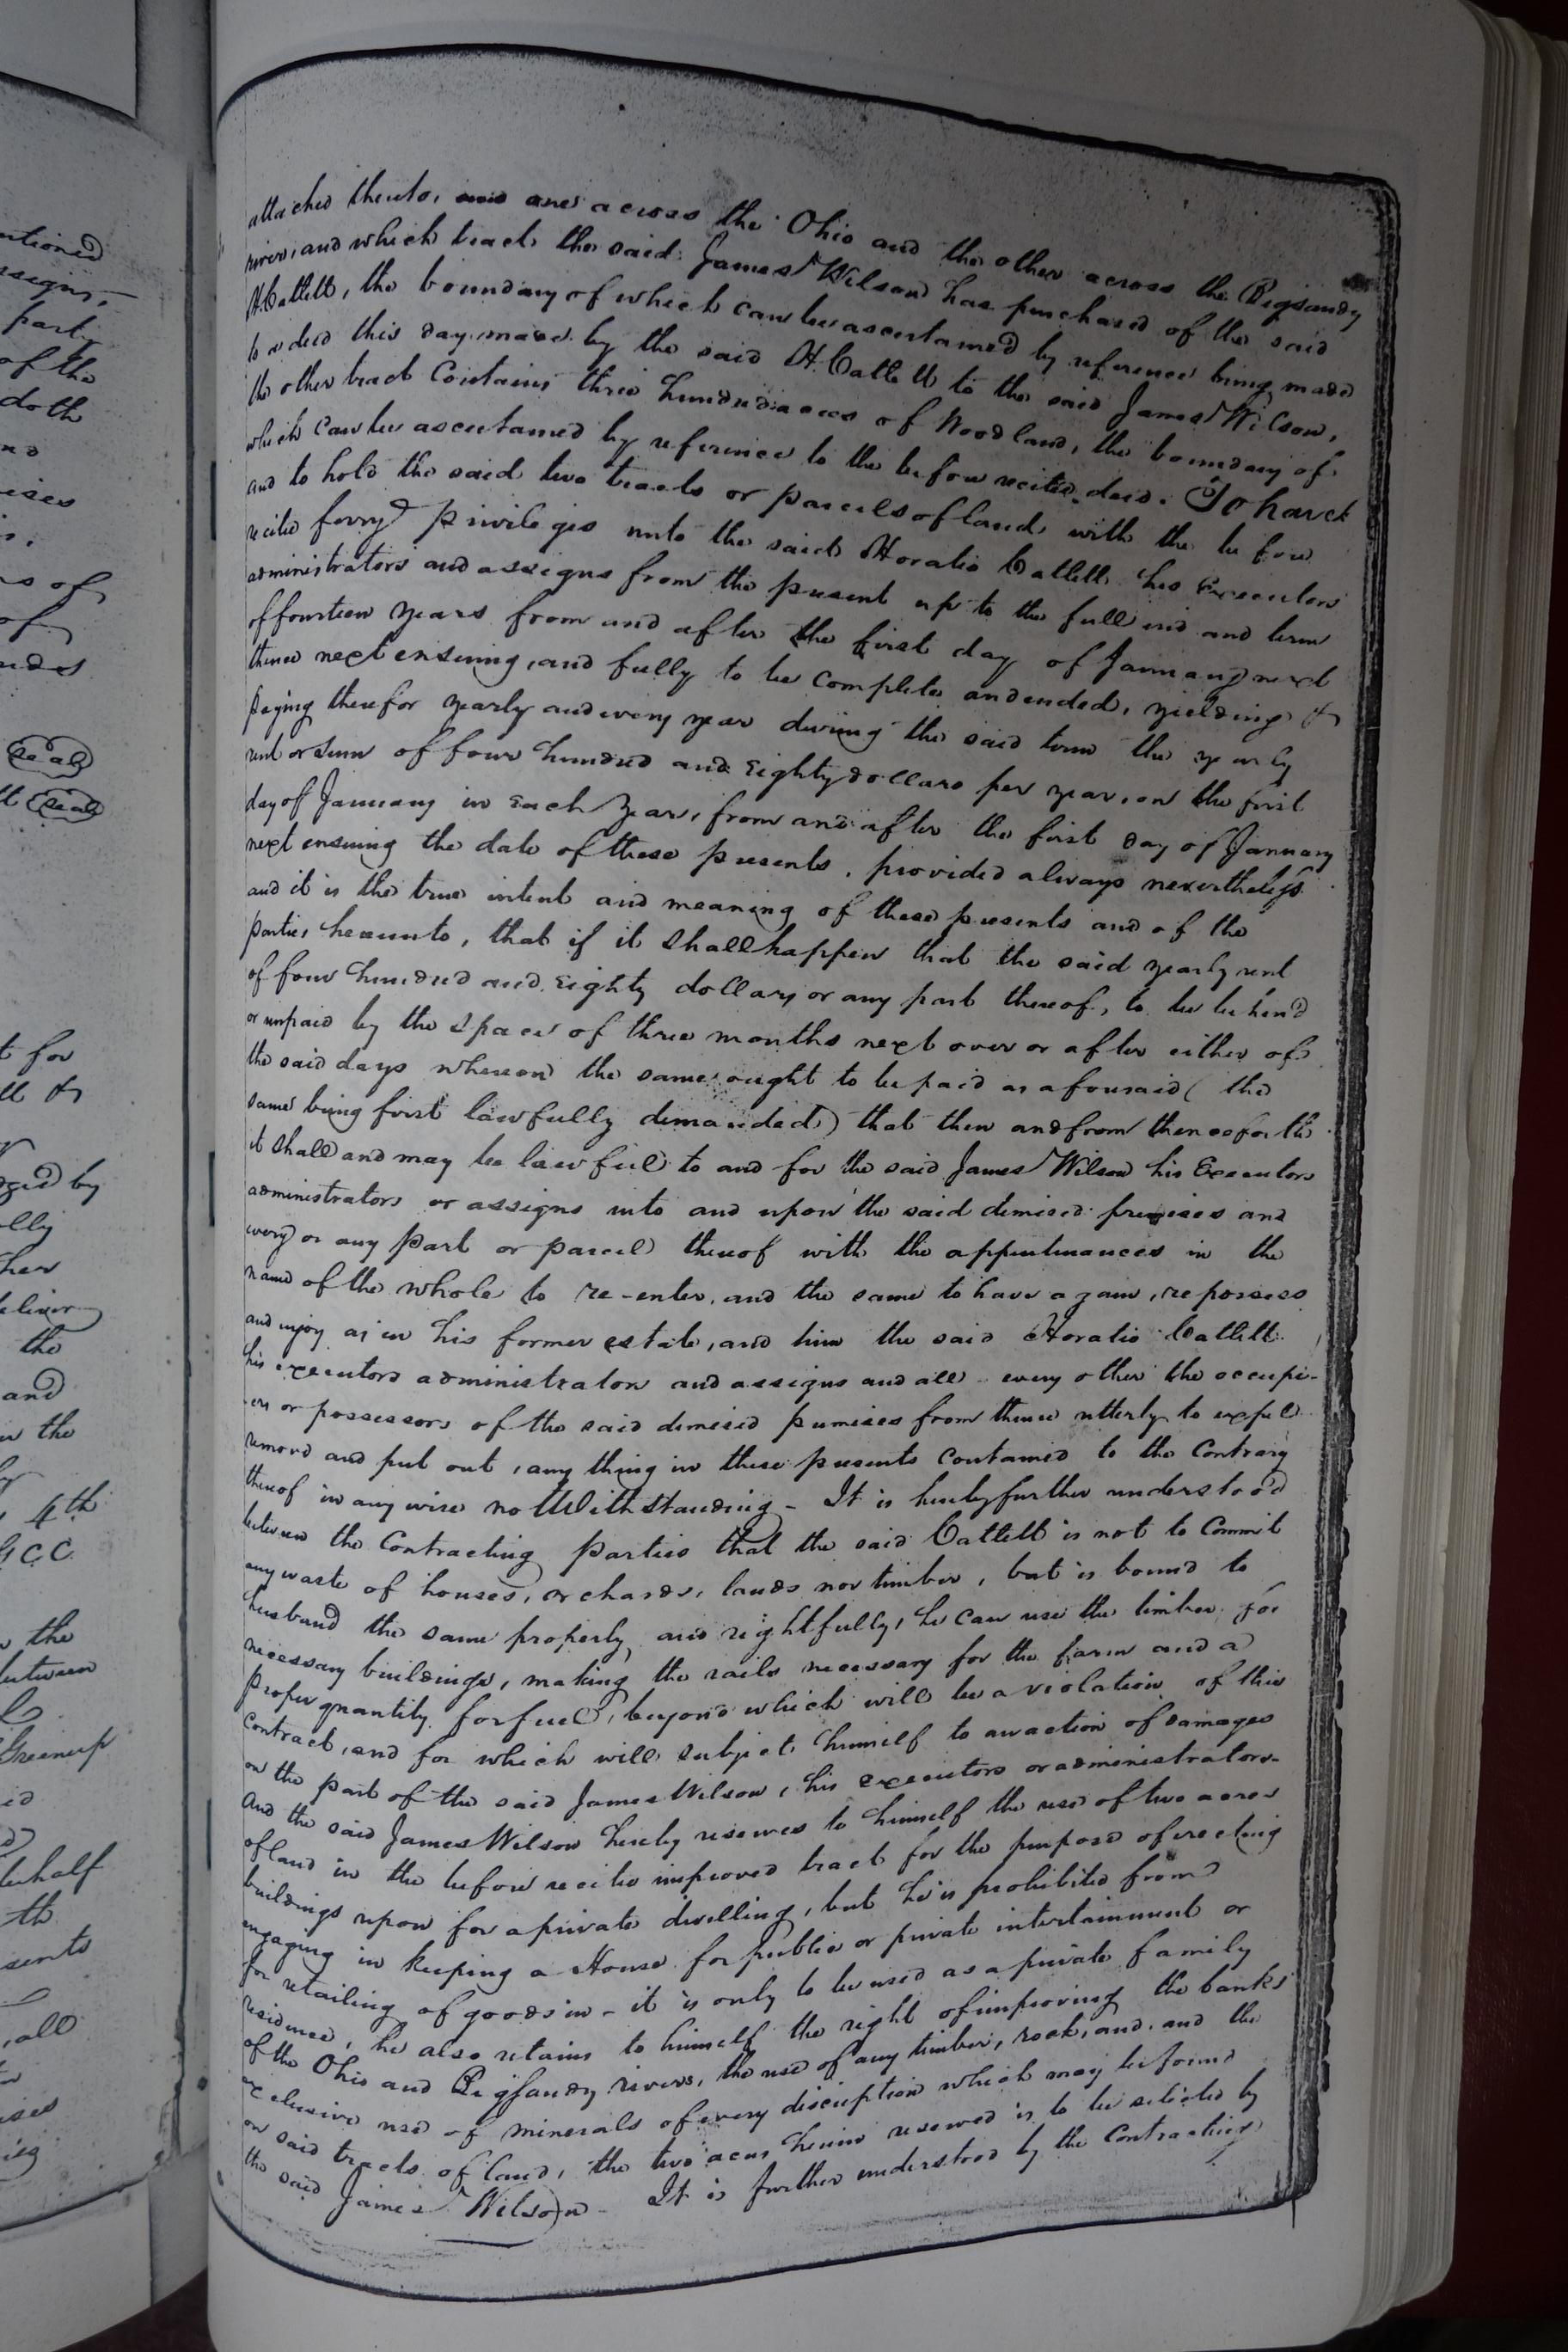 attached thereto, one across the Ohio and the other across the Bigsandy
river, and which tract the said James Wilson has purchased of the said
H. Catlett, the boundary of which can be ascertained by reference being made
to a deed this day made by the said H. Catlett to the said James Wilson,
the other tract Contains three hundred acres of Woodland, the boundary of
which can be ascertained by reference to the before recited deed. To have
and to hold the said two tracts or parcels of land with the before
recited ferry privileges unto the said Horatio Catlett his Executors
administrators and assigns from the present up to the full end and term
of fourteen years from and after the first day of January next
thence next ensuing, and fully to be Complete and ended, yielding &
paying therefor yearly and every year during the said term the yearly
rent or sum of four hundred and Eighty dollars per year, on the first
day of January in Each Year, from and after the first day of January
next ensuing the date of these presents, provided always nevertheless
and it is the true intent and meaning of these presents and of the
parties hereunto, that if it shall happen that the said yearly rent
of four hundred and Eighty dollars or any part thereof, to be behind
or unpaid by the space of three months next over or after either of
the said days whereon the same ought to be paid as aforesaid (the
same being first lawfully demanded) that then and from thenceforth
it shall and may be lawful to and for the said James Wilson his Executors
administrators or assigns into and upon the said demised premises and
every or any part or parcel thereof with the appurtenances in the
name of the whole to re-enter, and the same to have again, repossess
and enjoy as in his former estate, and him the said Horatio Catlett
his executors administrators and assigns and all every other the occupi-
-ers or possessors of the said demised premises from thence utterly to expel
remove and put out, any thing in these presents contained to the Contrary
thereof in any wise notWithstanding - It is hereby further understood
between the Contracting parties that the said Catlett is not to Commit
any waste of houses, orchards, lands nor timber, but is bound to
husband the same properly and rightfully, he can use the timber for
necessary buildings, making the rails necessary for the farm and a
proper quantity for fuel, beyond which will be a violation of this
contract, and for which will subject himself to an action of damages
on the part of the said James Wilson, his executors or administrators.
And the said James Wilson hereby reserves to himself the use of two acres
of land in the before recited improved tract for the purpose of erecting
buildings upon for a private dwelling, but he is prohibited from
engaging in keeping a House for public or private intertainment or
for retailing of goods in - it is only to be used as a private family
residence, he also retains to himself the right of improving the banks
of the Ohio and Bigsandy rivers, the use of any timber, rock, and, and the
exclusive use of minerals of every discription which may be found
on said tracts of land, the two acres herein reserved is to be selected by
the said James Wilson - It is further understood by the Contracting